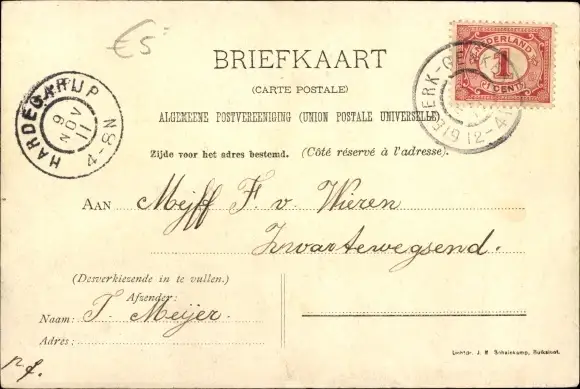 €5
BRIEFKAART
(CARTE POSTALE)
ALGEMEENE POSTVEREENIGING (UNION POSTALE UNIVERSELLE)
Zijde voor het adres bestemd. (Côté réservé à l'adresse).
NEDERLAND
1
(1 CENT)
HARDEGARIJP
9
NOV
11
4-8N
12-4N
AAN Mejff F. v. Wieren
Zwartewegsend.
(Desverkiezende in te vullen.)
Afzender:
Naam: T. Meijer.
Adres:
Lichtdr. J. B. Schalekamp, Buiksloot.